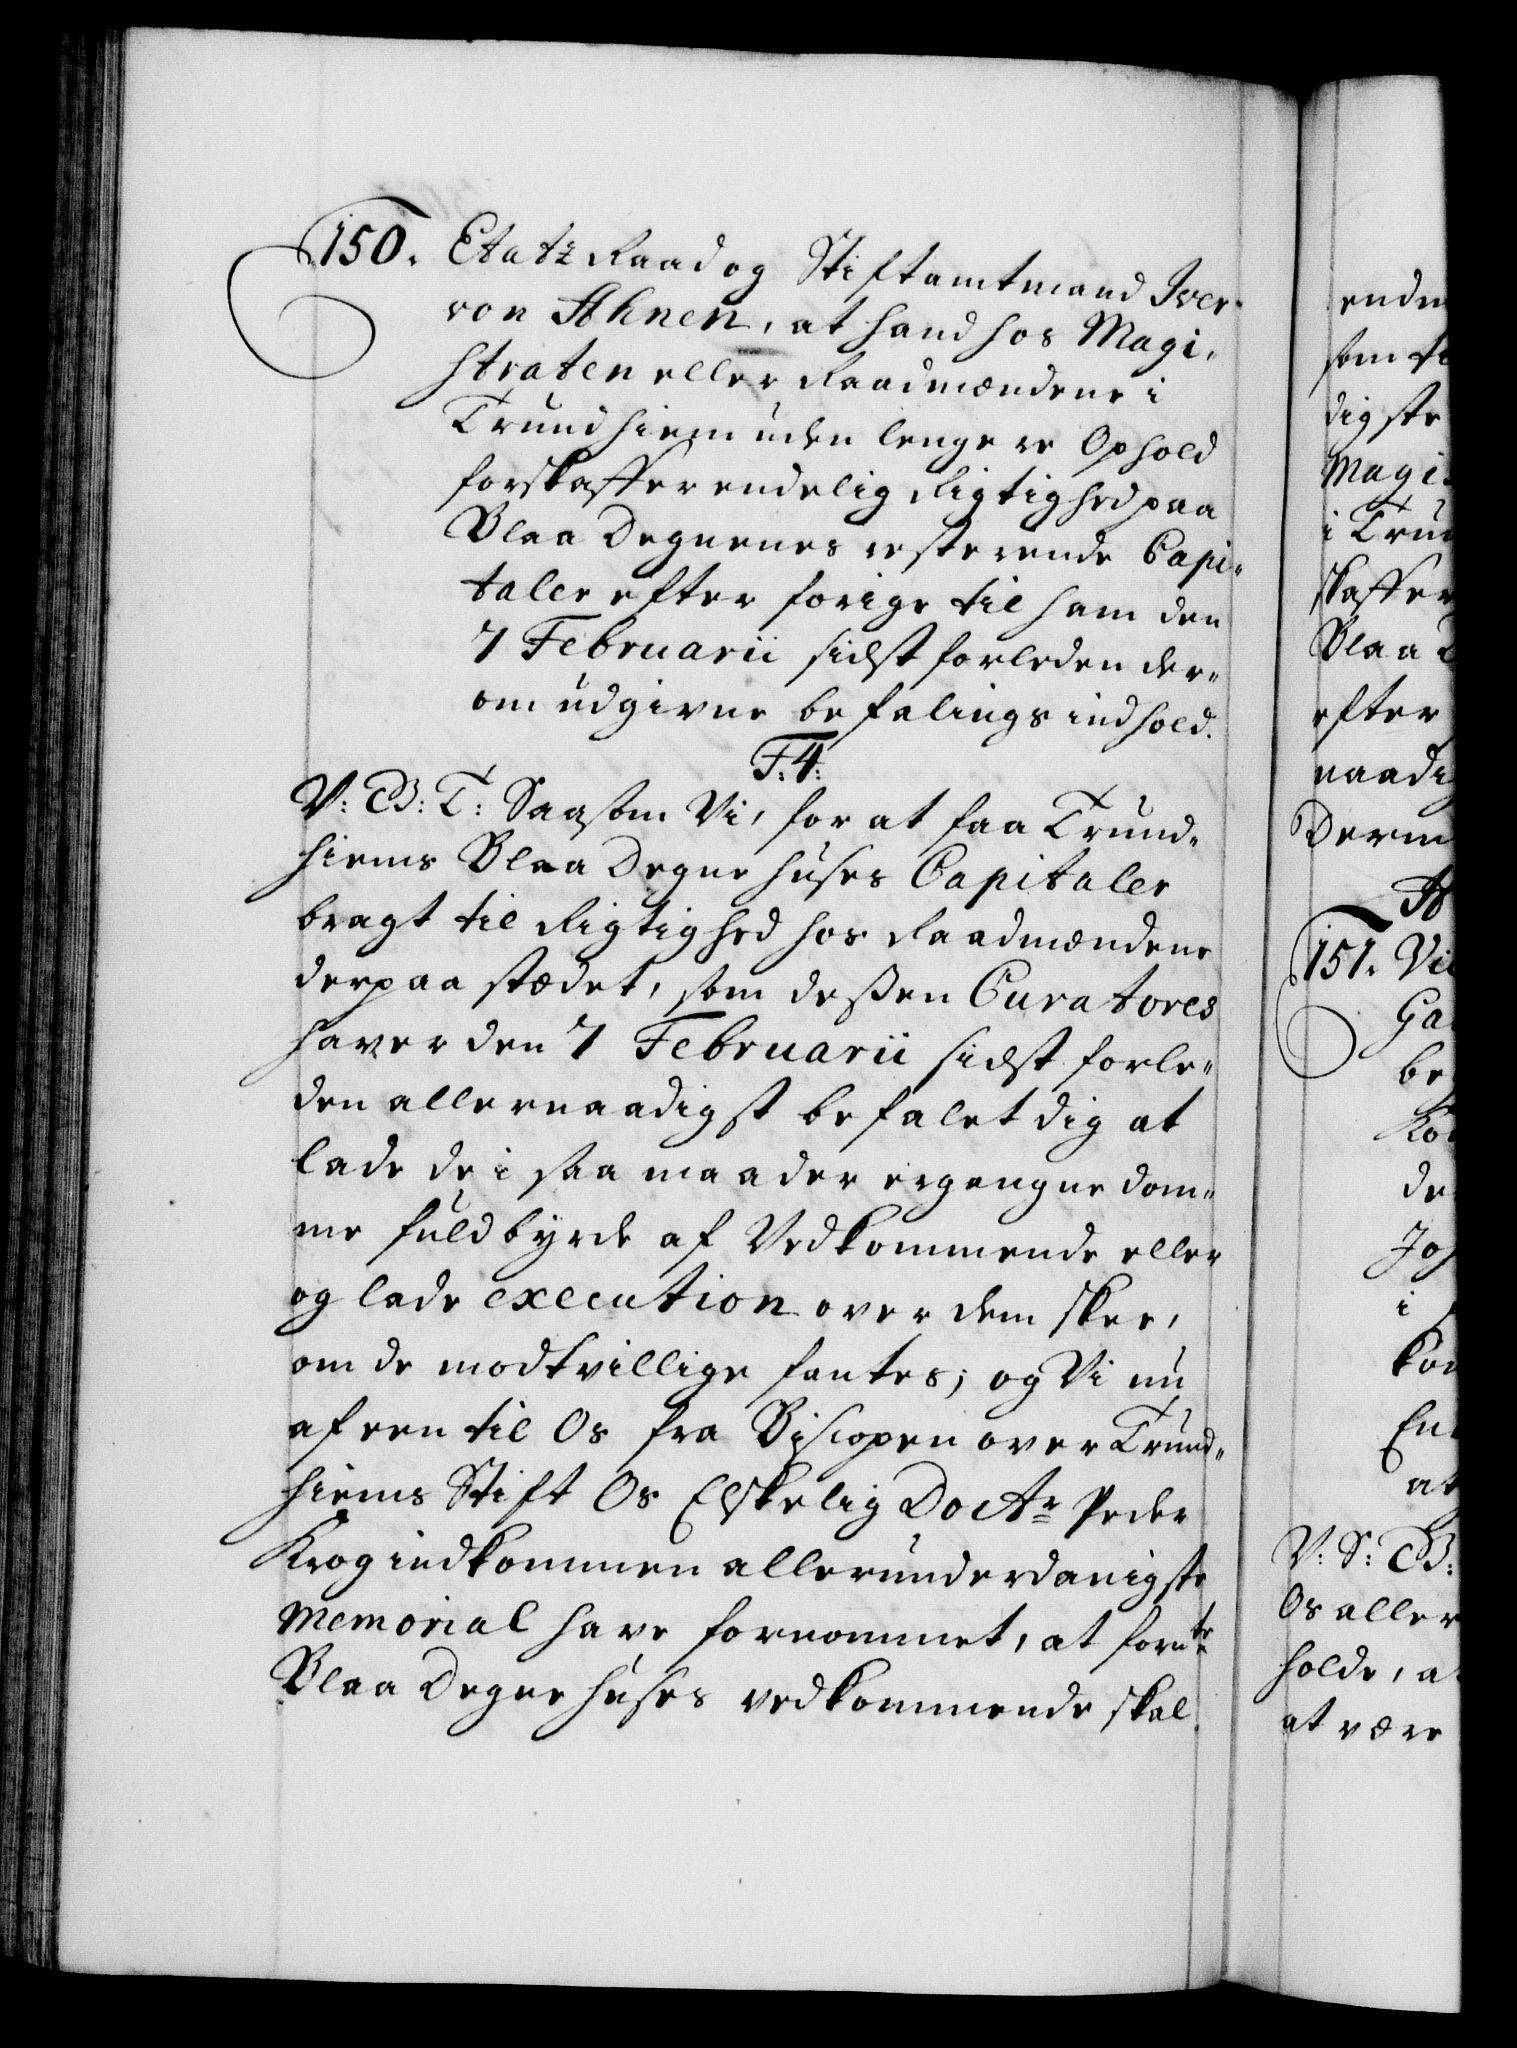 150. Etatz Raad og Stiftamtmand Iver
von Ahnen, at hand hos Magi„
straten eller Raadmændene i
Trundhiem uden lengere Ophold
forskaffer endelig Rigtighed paa
Blaa Degnenes resterende Capi„
taler efter forige til ham den
7 Februarii sidst forleden der„
om udgivne befalings indhold.
F: 4:
V: G: T: Saasom Vi, for at faa Trund„
hiems Blaa Degne huses Capitaler
bragt til Rigtighed hos Raadmændene
der paa stædet, som deßen Curatores
haver den 7 Februarii sidst forle„
den allernaadigst befalet dig at
lade de i saa maader ergangne dom„
me fuldbyrde af Vedkommende eller
og lade execution over dem skee,
om de modtvillige fantes; og Vi nu
af een til Os fra Biscopen over Trund„
hiems Stift Os Elskelig Doctr Peder
Krog indkommen allerunderdanigste
Memorial have fornommet, at fornte
Blaa Degne huses vedkommende skal
endn
som ti
digste
Magi„
i Trun
skaffer
Blaa D
efter
naadig
Derm
A
151. Vil
Ga
be
Kon
de
Joh
i
kom
En
at
V: S: G:
Os aller
holde, a
at være